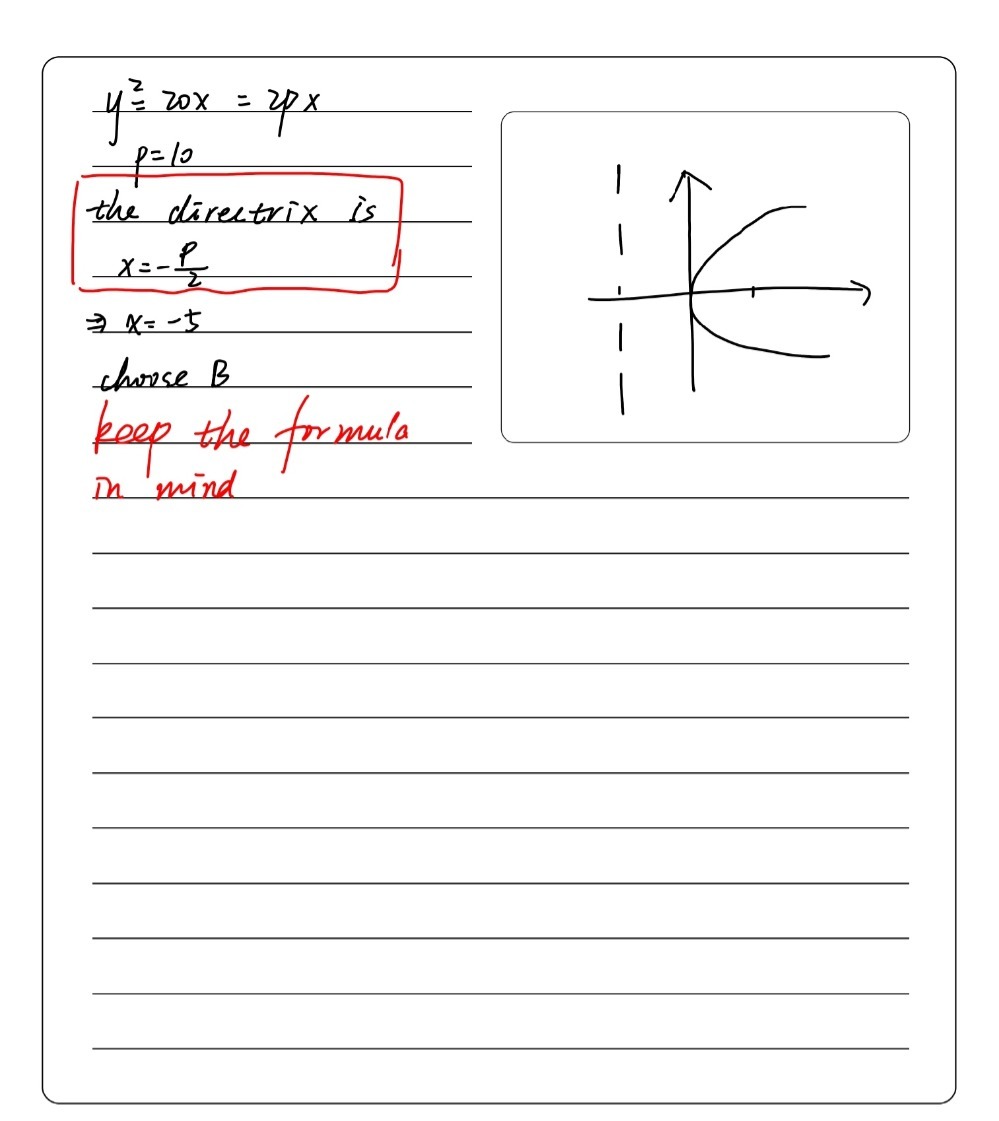 y² = 20x = 2px
p=10
the directrix is
x = -p/2
⇒ x = -5
choose B
keep the formula
in mind